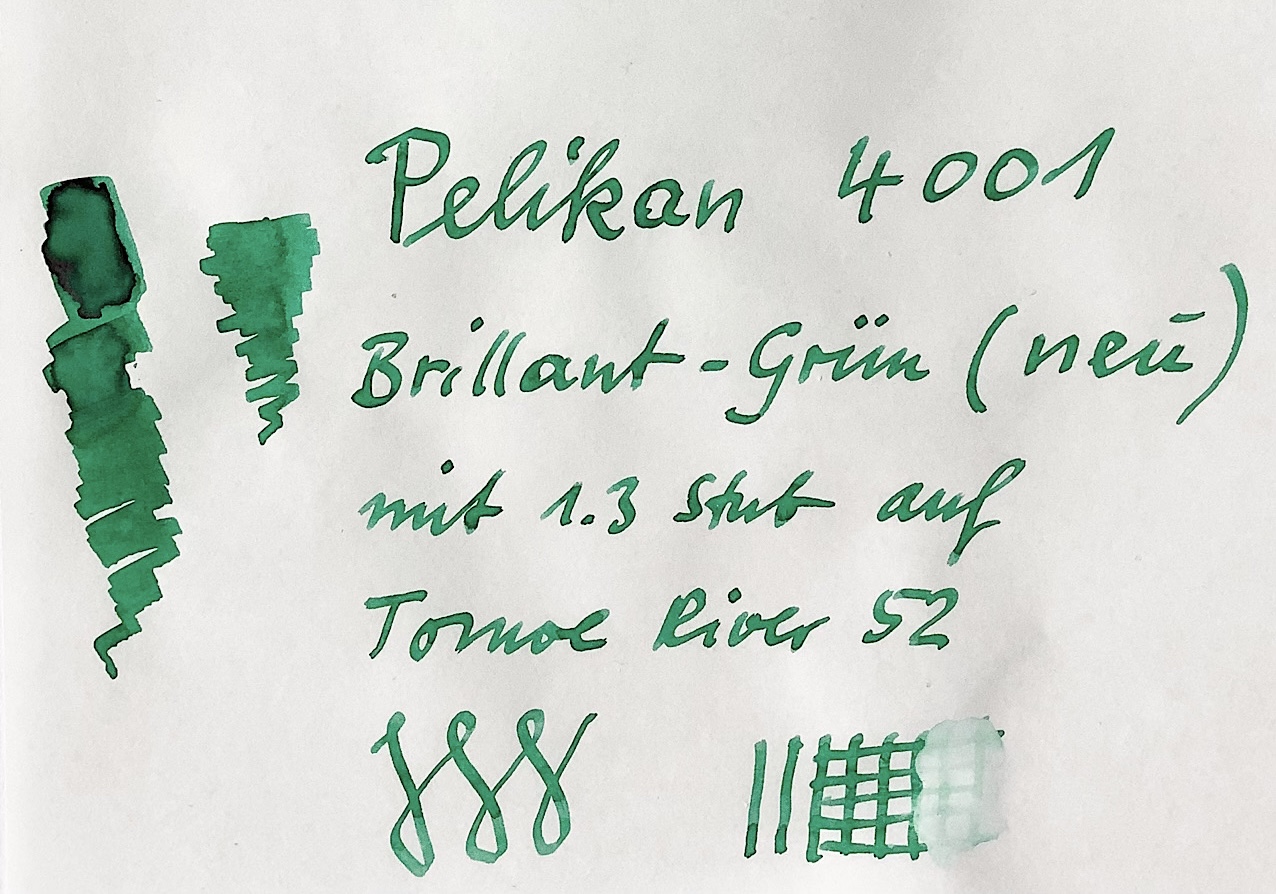 Pelikan 4001
Brillant-Grün (neu)
mit 1.3 Stub auf
Tomoe River 52